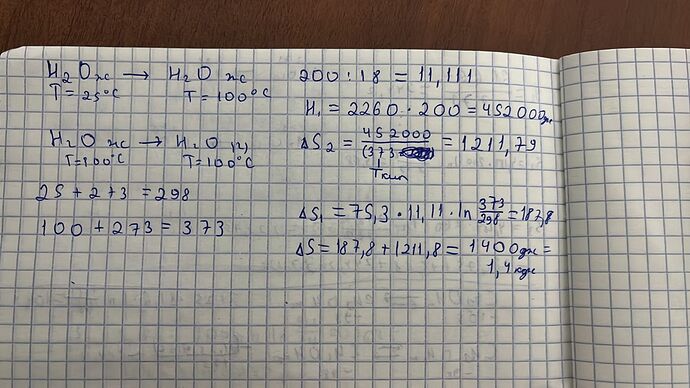 H₂O ж → H₂O ж
T = 25°C T = 100°C
H₂O ж → H₂O (г)
T = 100°C T = 100°C
25 + 273 = 298
100 + 273 = 373
200 : 18 = 11,111
H₁ = 2260 · 200 = 452000 дж
ΔS₂ = 452000 / (373 = 1211,79
Tкип
ΔS₁ = 75,3 · 11,11 · ln 373/298 = 187,8
ΔS = 187,8 + 1211,8 = 1400 дж =
1,4 кдж